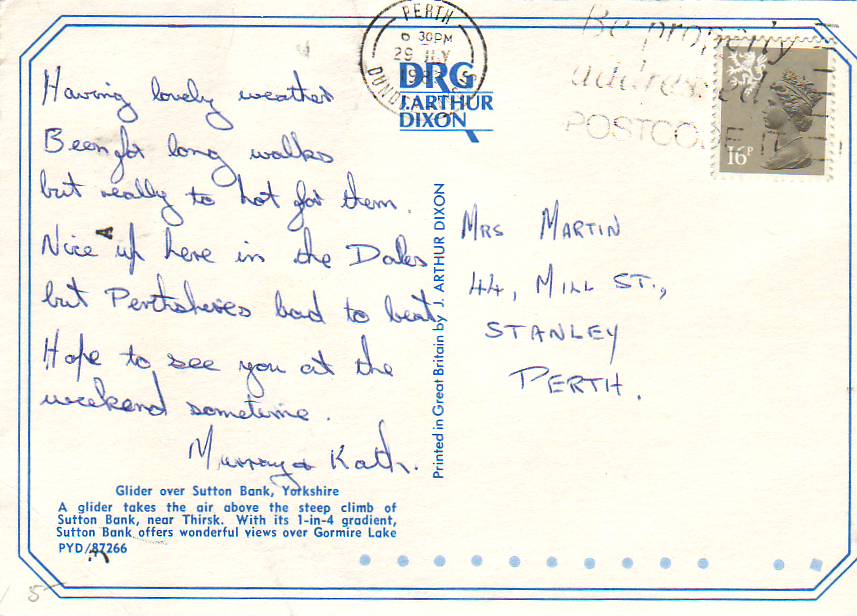 Having lovely weather
Been for long walks
but really to hot for them.
Nice up here in the Dales
but Perthshires bad to beat
Hope to see you at the
weekend sometime.
Murray & Kath.
Glider over Sutton Bank, Yorkshire
A glider takes the air above the steep climb of
Sutton Bank, near Thirsk. With its 1-in-4 gradient,
Sutton Bank offers wonderful views over Gormire Lake
PYD/87266
5
DRG
J.ARTHUR
DIXON
Printed in Great Britain by J. ARTHUR DIXON
PERTH
6 30PM
29
Be properly
addressed
POSTCODE
16P
MRS MARTIN
44, MILL ST.,
STANLEY
PERTH.